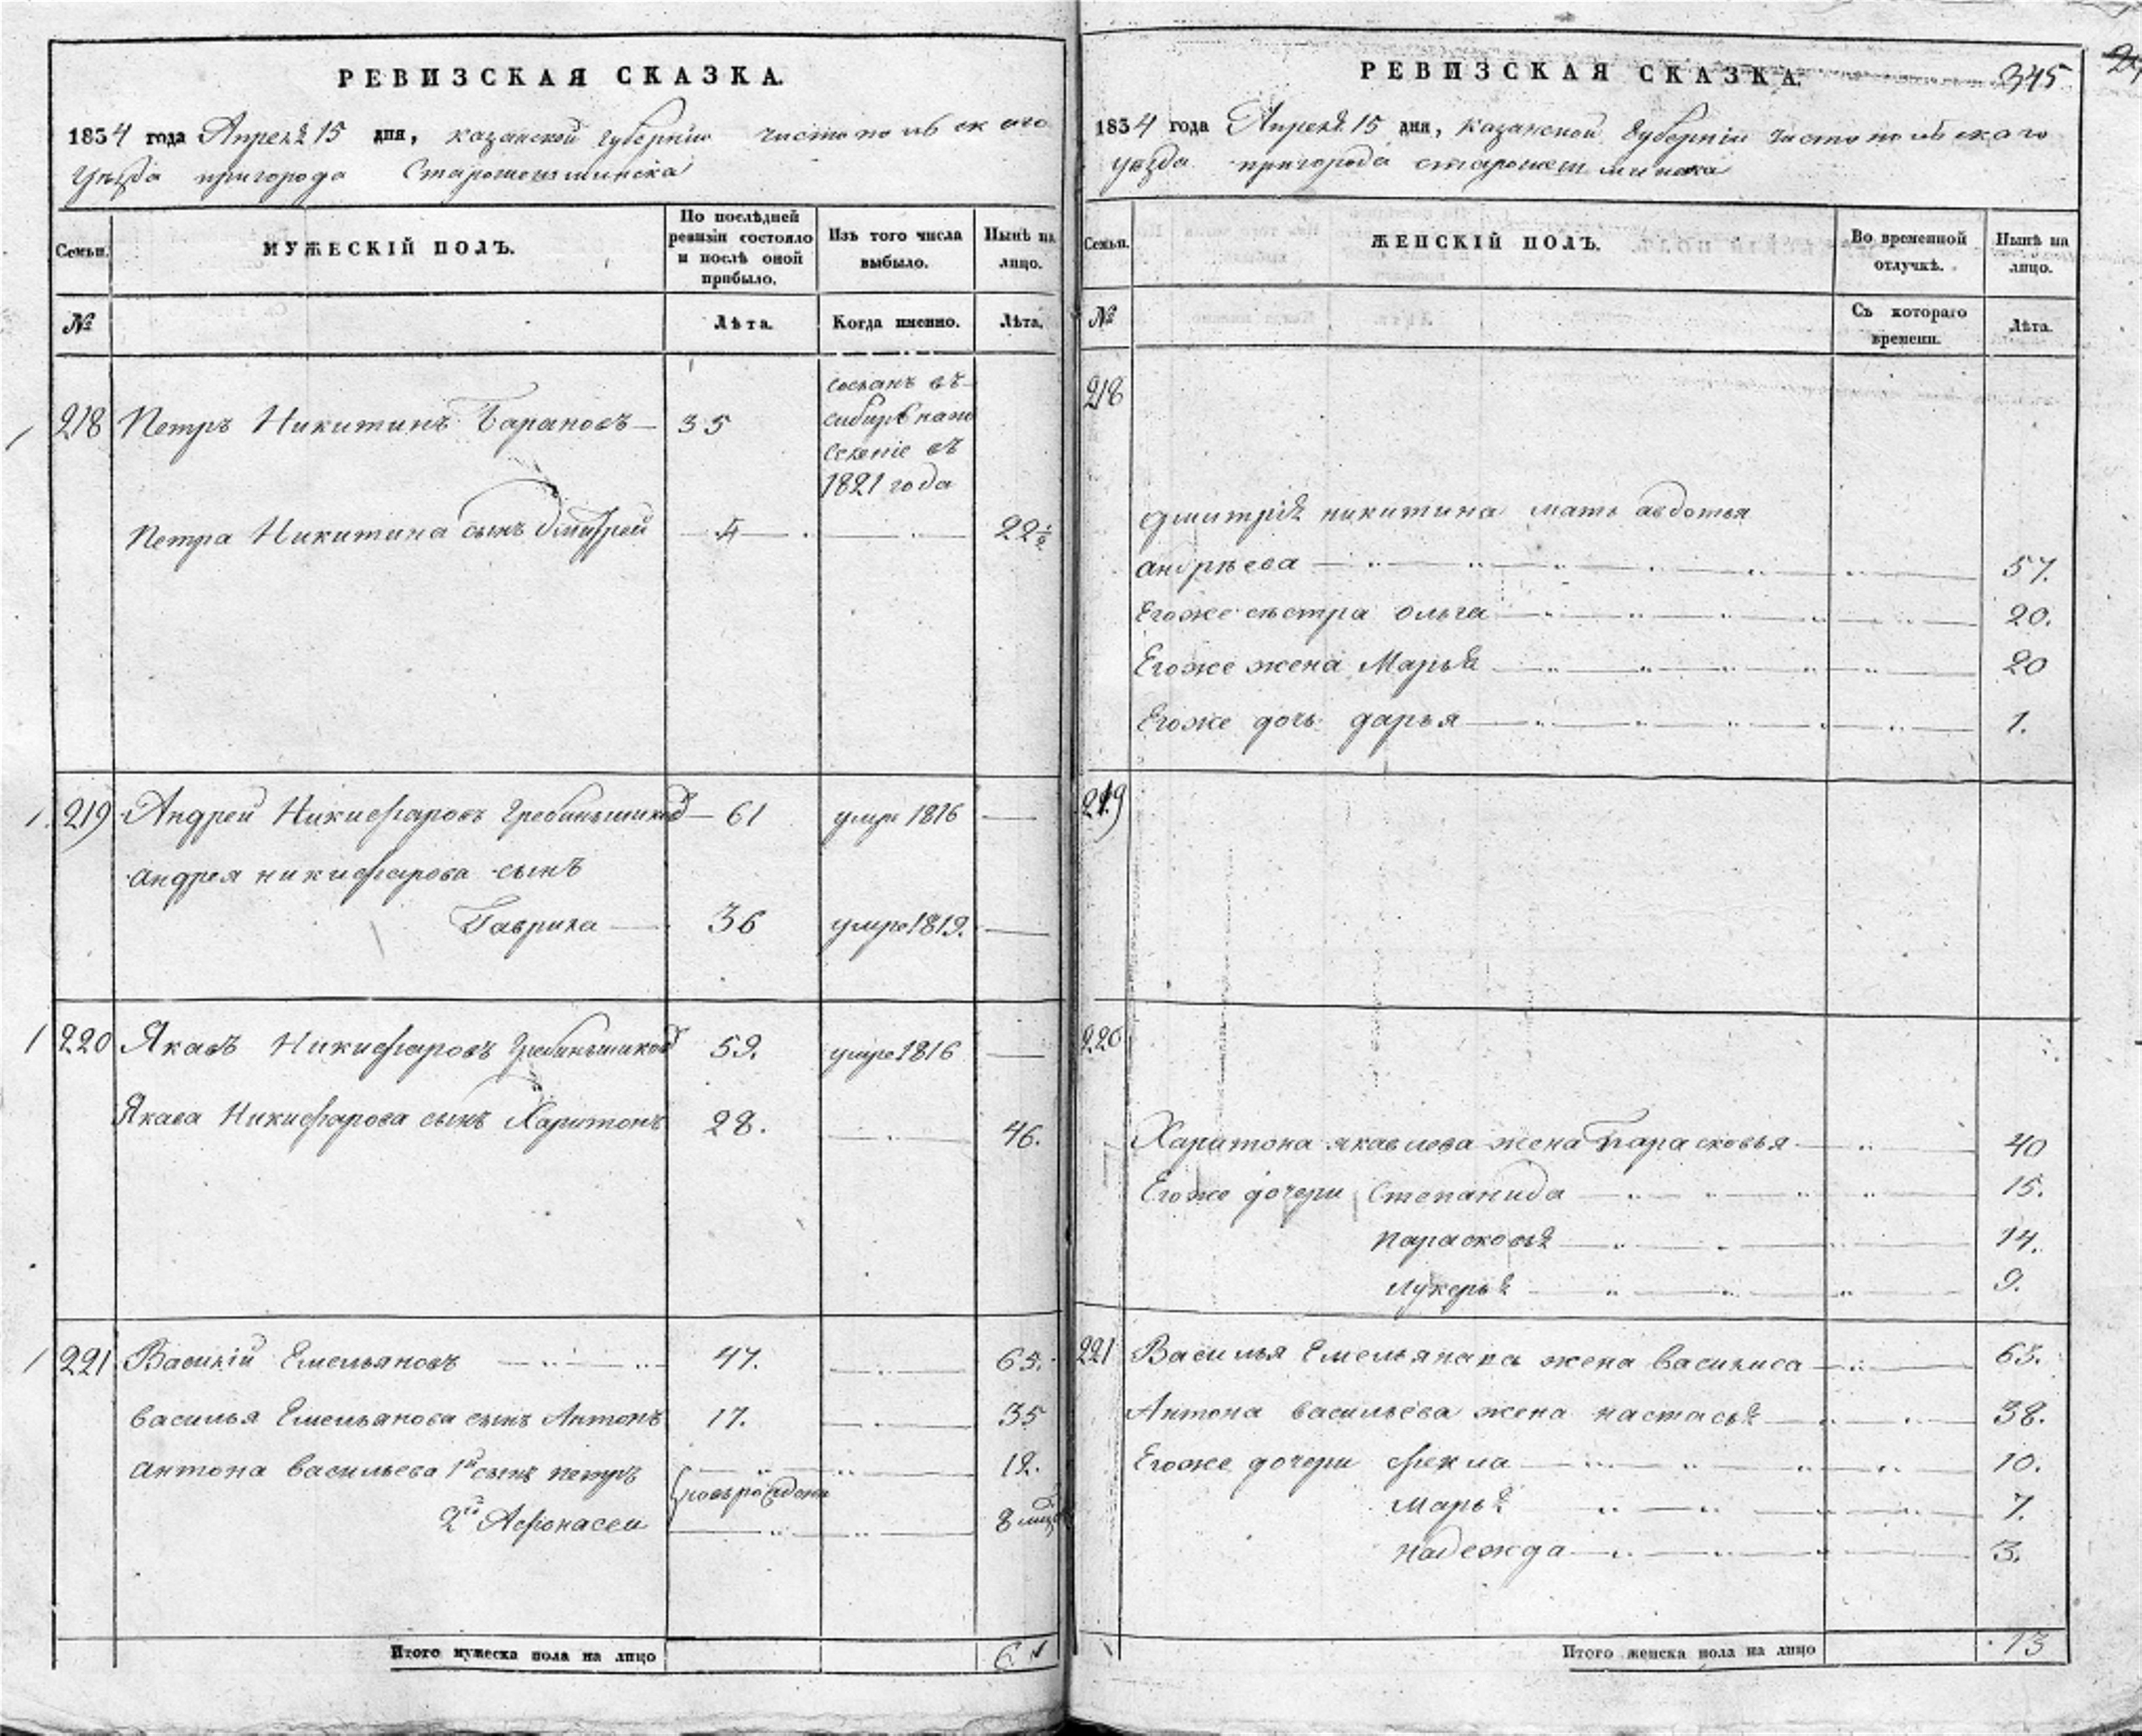 РЕВИЗСКАЯ СКАЗКА.
1834 года Апреля 15 дня, казанской губернии чистопольского
уезда пригорода Старошешминска
Семьи.
МУЖЕСКІЙ ПОЛЪ.
По послѣдней
ревизіи состояло
и послѣ оной
прибыло.
Изъ того числа
выбыло.
Нынѣ на
лицо.
№
Лѣта.
Когда именно.
Лѣта.
218 Петръ Никитинъ Барановъ 35
сосланъ въ
сибирь на по
селеніе въ
1821 года
Петра Никитина сынъ Дмитрей 4 22½
219 Андрей Никифаровъ Гребеньшиковъ 61 умре 1816
андрея никифарова сынъ
Гаврила 36 умре 1819.
220 Якавъ Никифаровъ Гребеньшиковъ 59. умре 1816
Якава Никифарова сынъ Харитонъ 28. 46.
221 Василій Емельяновъ 47. 65.
василья Емельянова сынъ Антонъ 17. 35
антона васильева 1й сынъ петръ 12.
новърожденны
2й Афонасеи 8 мцов
Итого мужеска пола на лицо 6
РЕВИЗСКАЯ СКАЗКА.
345
1834 года Апреля 15 дня, казанской губерніи чистопольскаго
уезда пригорода старошешминска
Семьи.
ЖЕНСКІЙ ПОЛЪ.
Во временной
отлучкѣ.
Нынѣ на
лицо.
№
Съ котораго
времени.
Лѣта.
218
дмитрія никитина мать авдотья
андрѣева 57.
Егоже сѣстра ольга 20.
Егоже жена Марья 20
Егоже дочь дарья 1.
219
220
Харитона якавлева жена Парасковья 40
Егоже дочери Степанида 15.
парасковья 14.
лукерья 9.
221 Василья Емельянава жена василиса 63.
Антона васильева жена настасья 38.
Егоже дочери фекла 10.
марья 7.
надежда 3.
Итого женска пола на лицо 13